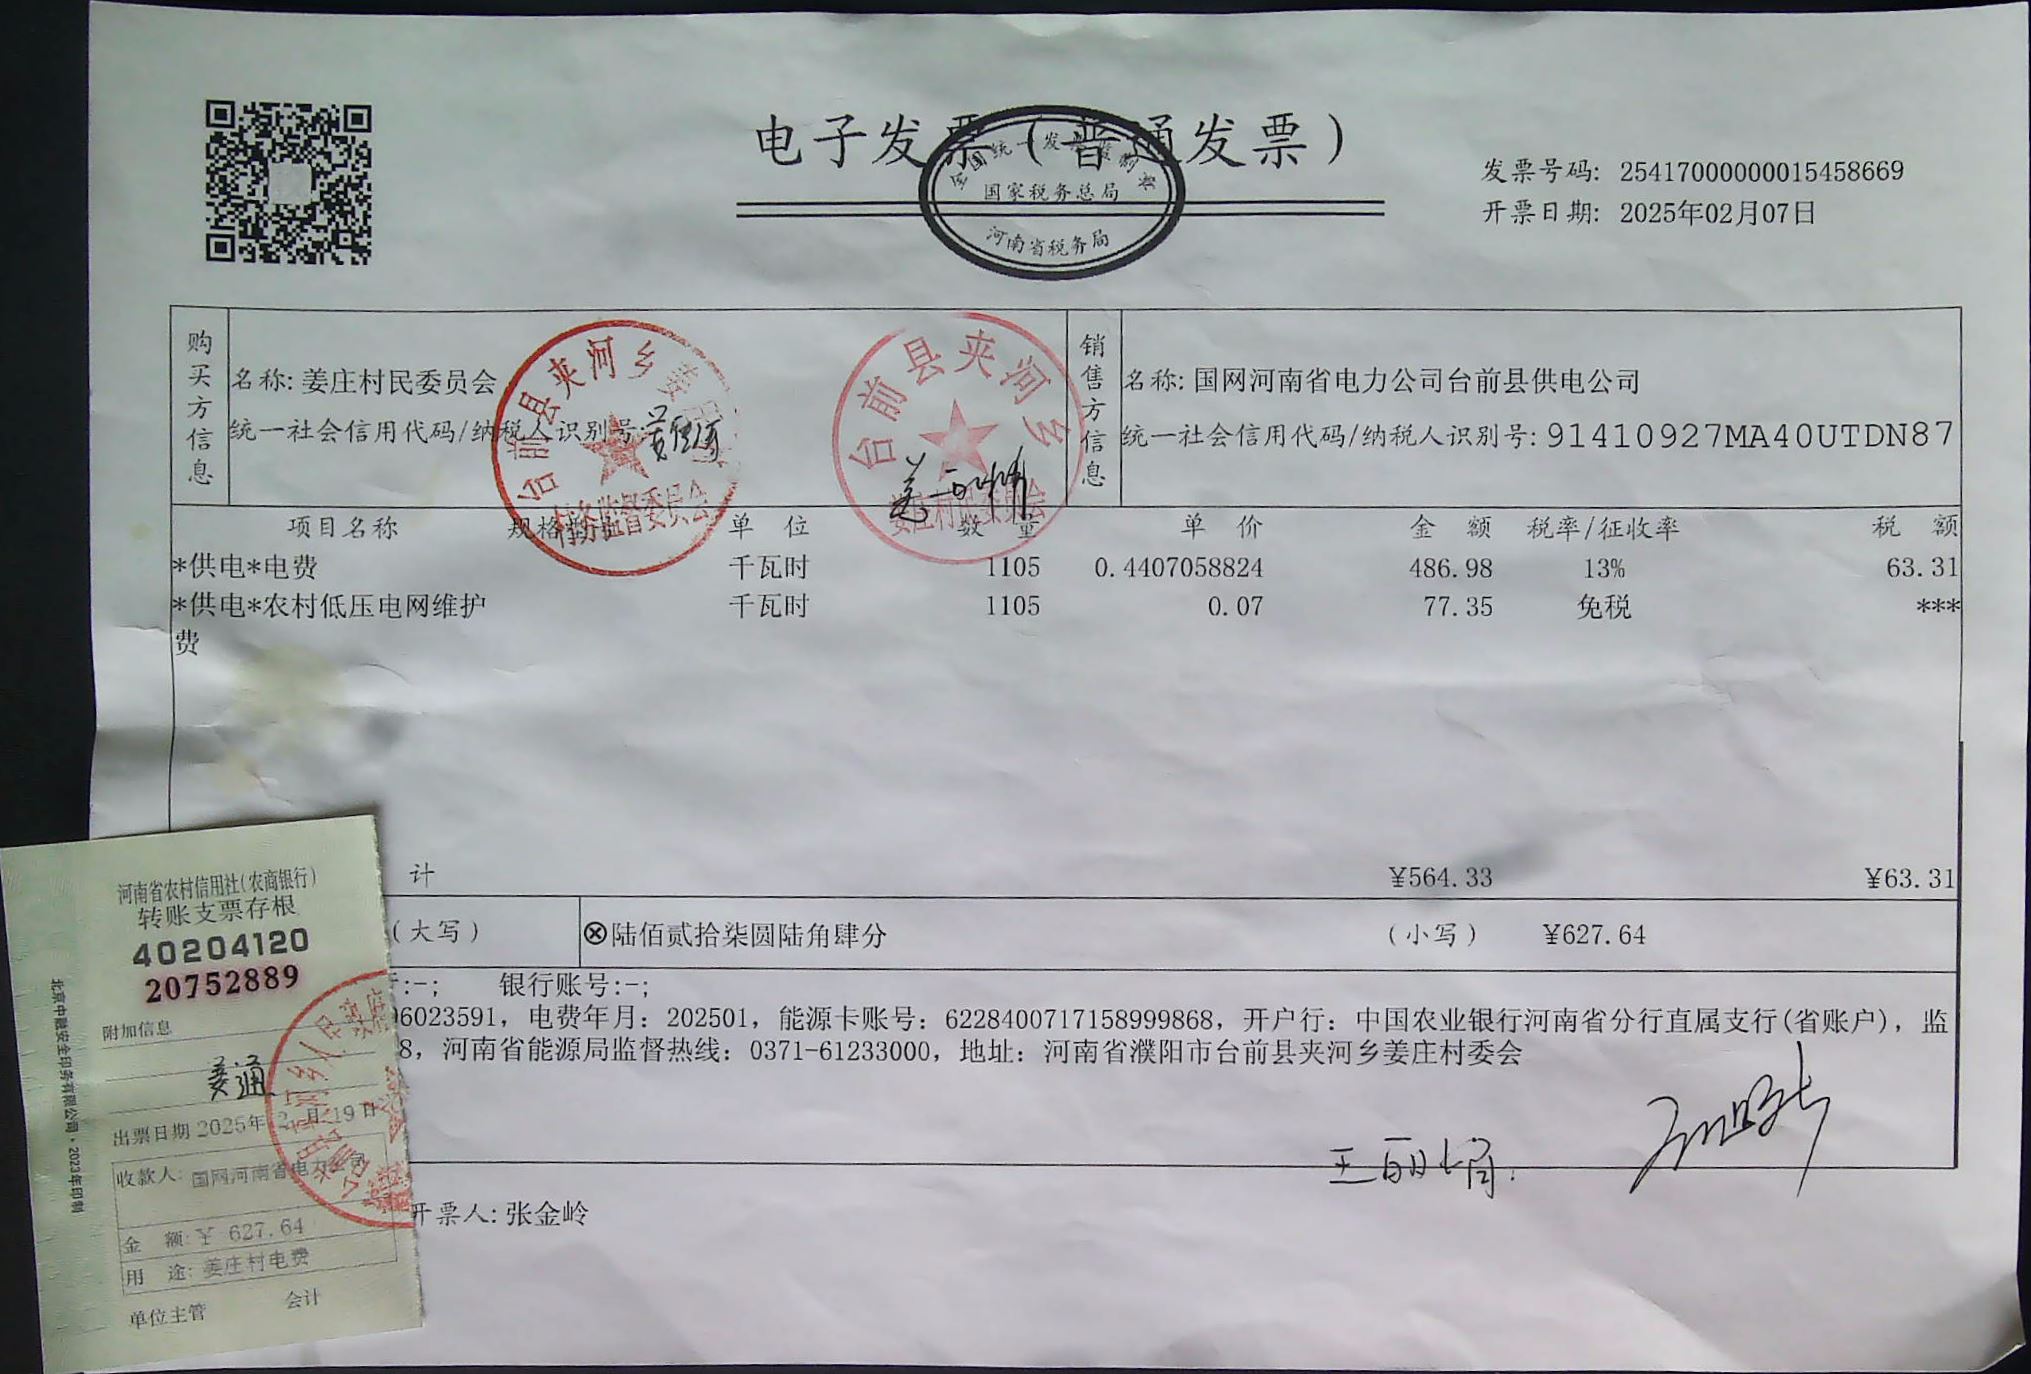 电子发票（普通发票）
全国统一发票监制章
国家税务总局
河南省税务局
发票号码: 25417000000015458669
开票日期: 2025年02月07日
购买方信息
名称: 姜庄村民委员会
统一社会信用代码/纳税人识别号:
台前县夹河乡姜庄
村务监督委员会
台前县夹河乡
姜庄村民委员会
销售方信息
名称: 国网河南省电力公司台前县供电公司
统一社会信用代码/纳税人识别号: 91410927MA40UTDN87
项目名称 规格型号 单位 数量 单价 金额 税率/征收率 税额
*供电*电费 千瓦时 1105 0.4407058824 486.98 13% 63.31
*供电*农村低压电网维护 千瓦时 1105 0.07 77.35 免税 ***
费
计 ¥564.33 ¥63.31
(大写) ⊗陆佰贰拾柒圆陆角肆分 (小写) ¥627.64
:-; 银行账号:-;
96023591，电费年月：202501，能源卡账号：6228400717158999868，开户行：中国农业银行河南省分行直属支行(省账户)，监
8，河南省能源局监督热线：0371-61233000，地址：河南省濮阳市台前县夹河乡姜庄村委会
开票人: 张金岭
河南省农村信用社(农商银行)
转账支票存根
40204120
20752889
附加信息
姜通
出票日期 2025年2月19日
收款人: 国网河南省电力公司
金 额: ¥ 627.64
用 途: 姜庄村电费
单位主管 会计
北京中融安全印务有限公司·2023年印制